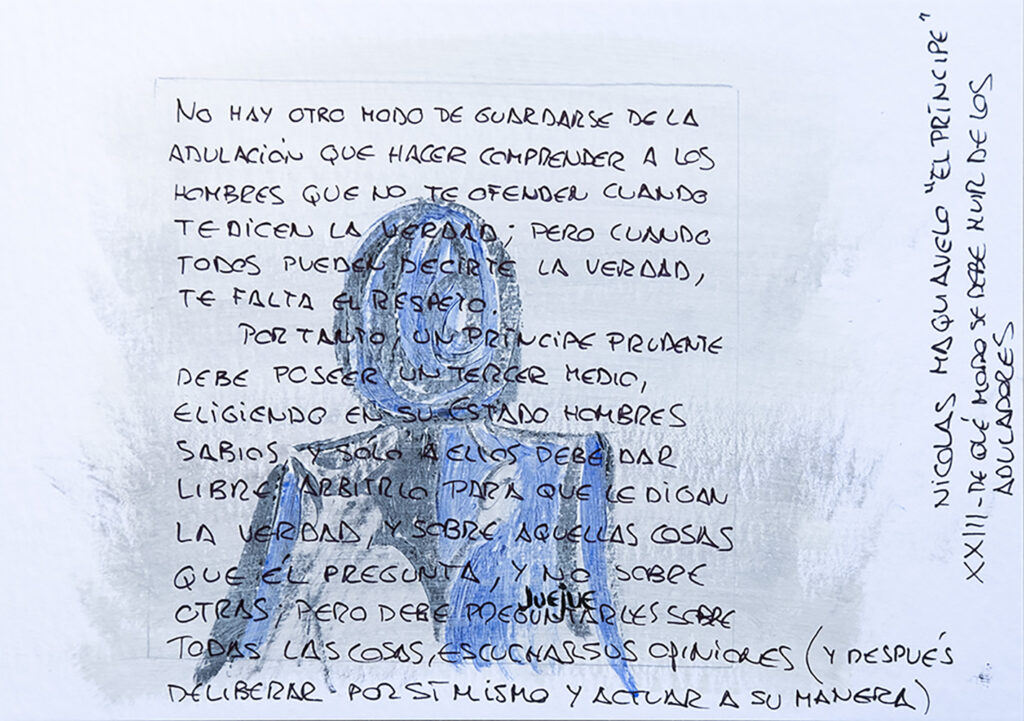 NO HAY OTRO MODO DE GUARDARSE DE LA
ADULACIÓN QUE HACER COMPRENDER A LOS
HOMBRES QUE NO TE OFENDEN CUANDO
TE DICEN LA VERDAD; PERO CUANDO
TODOS PUEDEN DECIRTE LA VERDAD,
TE FALTA EL RESPETO.
POR TANTO, UN PRÍNCIPE PRUDENTE
DEBE POSEER UN TERCER MEDIO,
ELIGIENDO EN SU ESTADO HOMBRES
SABIOS, Y SÓLO A ELLOS DEBE DAR
LIBRE ARBITRIO PARA QUE LE DIGAN
LA VERDAD, Y SOBRE AQUELLAS COSAS
QUE ÉL PREGUNTA, Y NO SOBRE
OTRAS; PERO DEBE PREGUNTARLES SOBRE
TODAS LAS COSAS, ESCUCHAR SUS OPINIONES (Y DESPUÉS
DELIBERAR POR SÍ MISMO Y ACTUAR A SU MANERA)
JUEJUE
NICOLAS MAQUIAVELO "EL PRÍNCIPE"
XXIII - DE QUÉ MODO SE DEBE HUIR DE LOS
ADULADORES